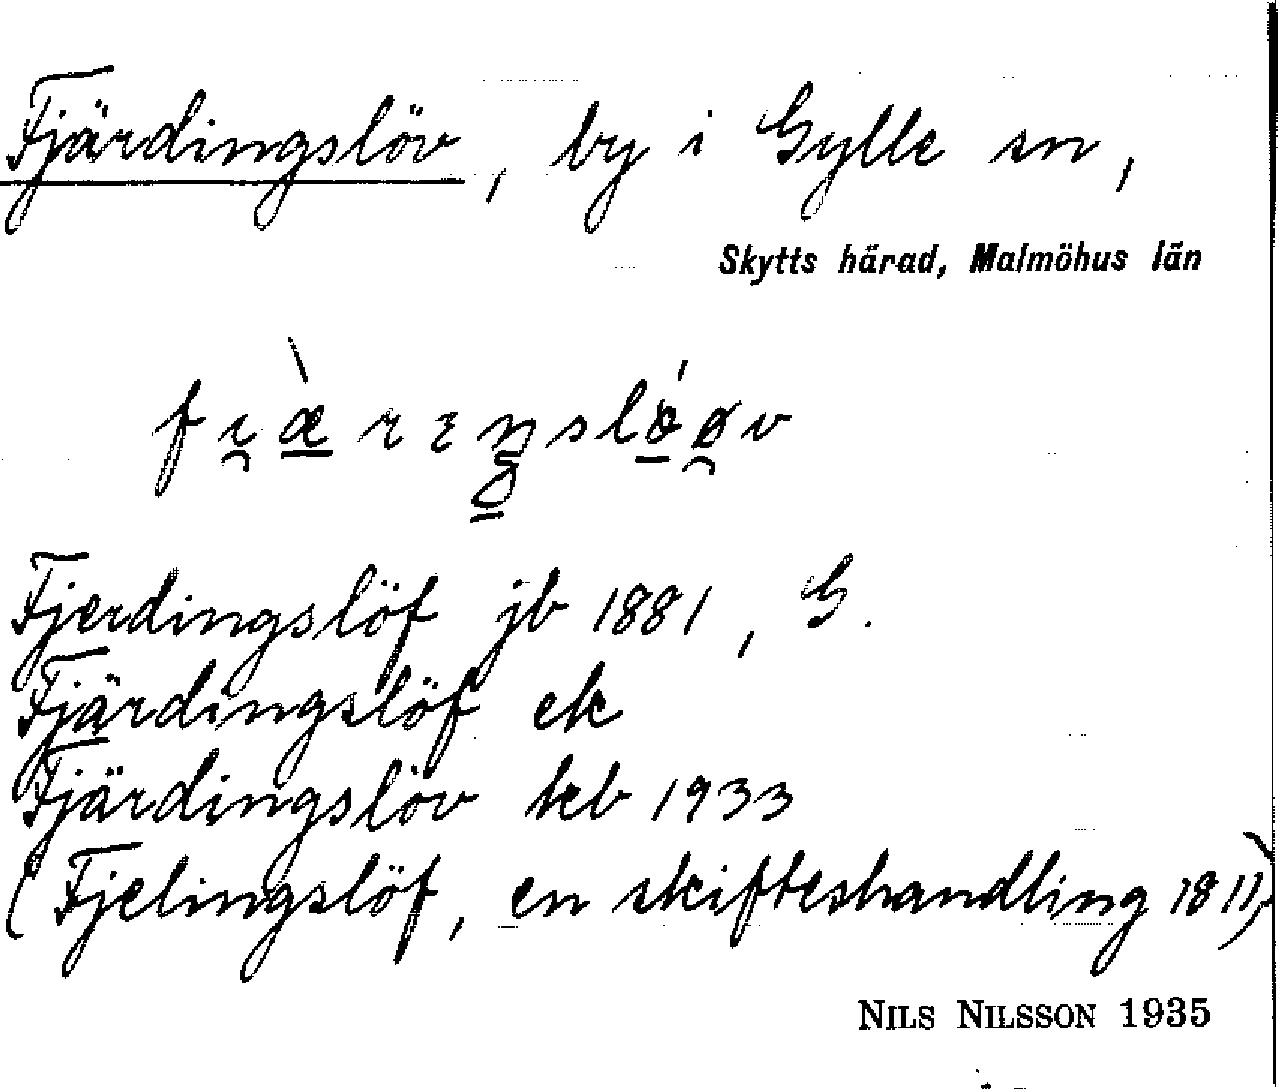 Fjärdingslöv, by i Gylle sn,
Skytts härad, Malmöhus län
Fjerdingslöf jb 1881, G.
Fjärdingslöf ek
Fjärdingslöv kcb 1933
(Fjelingslöf, en skifteshandling 1811)
NILS NILSSON 1935